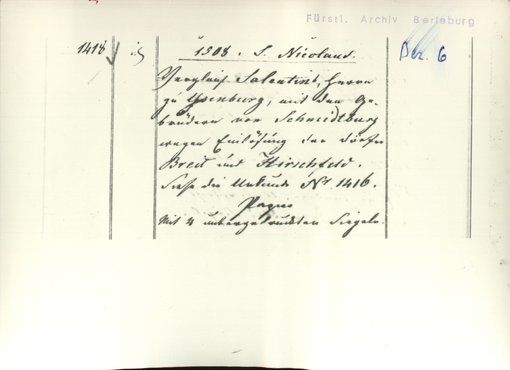 Fürstl. Archiv Berleburg
1418
1508. S. Nicolaus.
Dez. 6
Vergleich Salentins, Herrn
zu Ysenburg, mit den Ge-
brüdern von Schmidtburg
wegen Einlösung der Dörfer
Breit und Hirschfeld.
Siehe die Urkunde Nr 1416.
Papier
Mit 4 untergedruckten Siegeln.